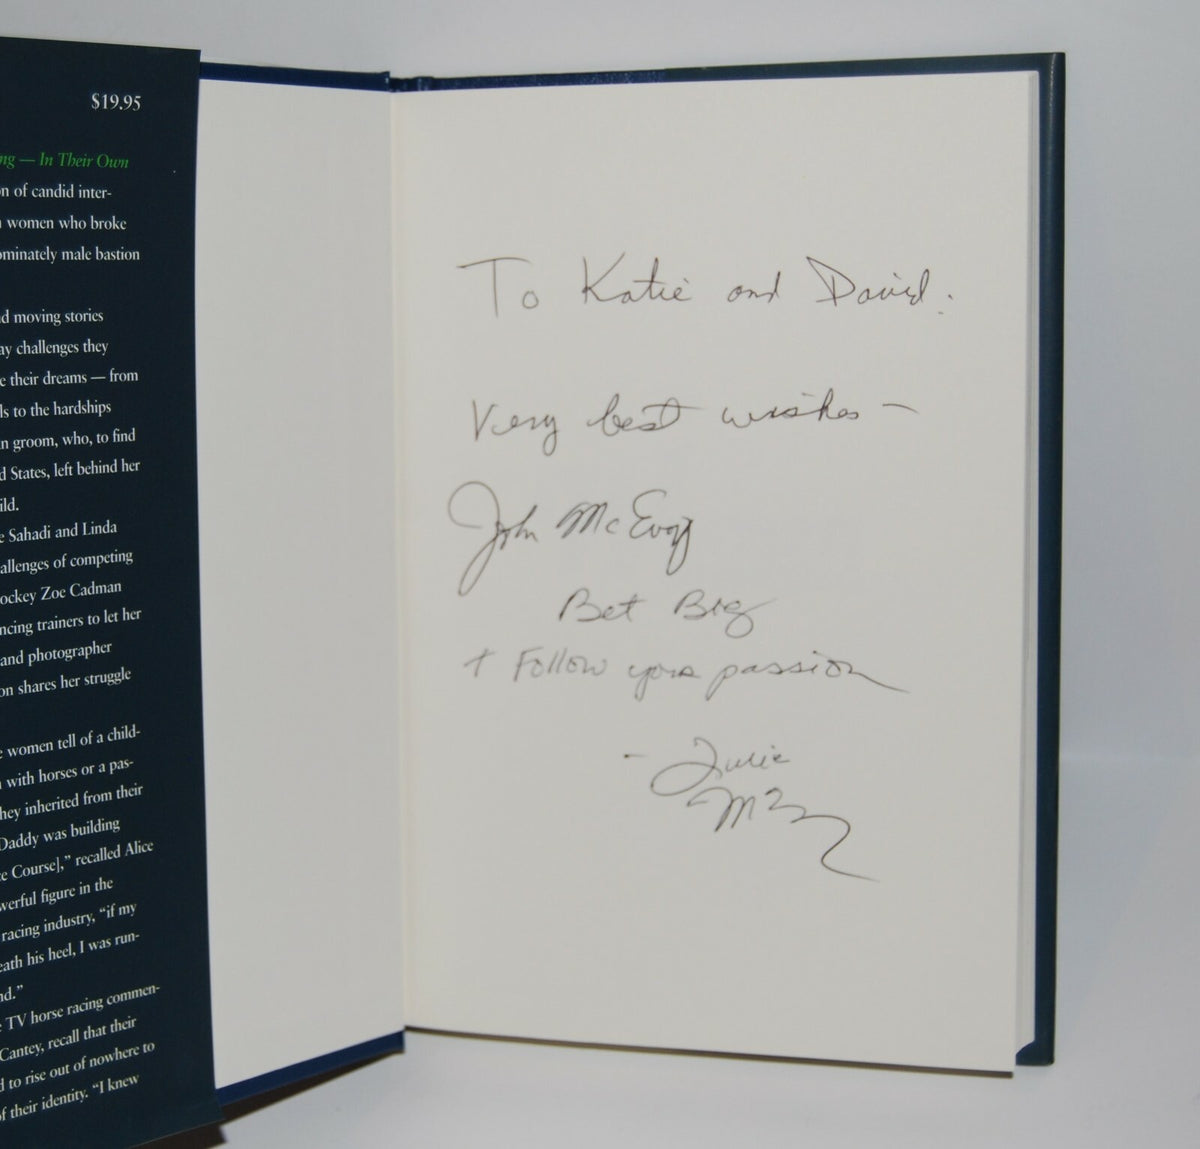 $19.95
ng — In Their Own
n of candid inter-
women who broke
ominately male bastion
d moving stories
ay challenges they
e their dreams — from
ls to the hardships
n groom, who, to find
d States, left behind her
ild.
e Sahadi and Linda
allenges of competing
ockey Zoe Cadman
ncing trainers to let her
and photographer
on shares her struggle
e women tell of a child-
with horses or a pas-
hey inherited from their
Daddy was building
e Course],” recalled Alice
werful figure in the
racing industry, “if my
eath his heel, I was run-
nd.”
TV horse racing commen-
Cantey, recall that their
d to rise out of nowhere to
of their identity. “I knew
To Katie and David:
Very best wishes —
John McEvoy
Bet Big
+ Follow your passion
- Julie